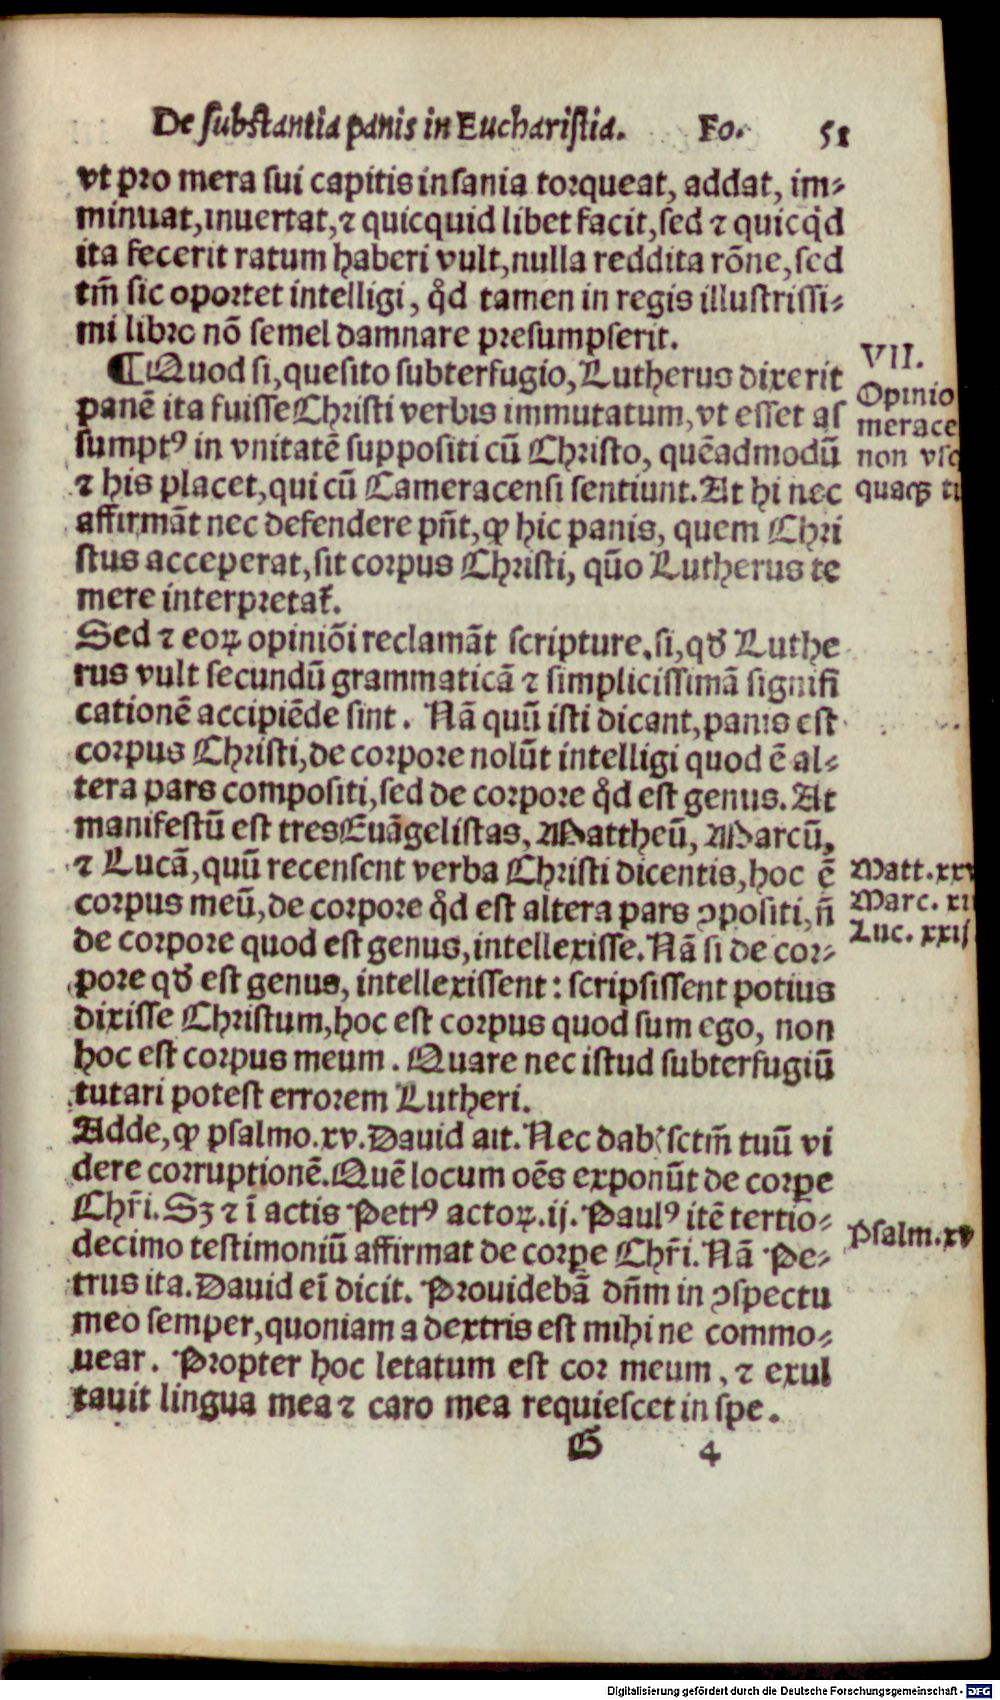 De substantia panis in Eucharistia. Fo. 51
vt pro mera sui capitis insania torqueat, addat, im⸗
minuat, inuertat, ⁊ quicquid libet facit, sed ⁊ quicq̇d
ita fecerit ratum haberi vult, nulla reddita rõne, sed
tm̃ sic oportet intelligi, q̊d tamen in regis illustrissi⸗
mi libro nõ semel damnare presumpserit.
¶Quod si, quesito subterfugio, Lutherus dixerit
panẽ ita fuisse Christi verbis immutatum, vt esset as
sumptꝰ in vnitatẽ suppositi cũ Christo, quẽadmodũ
⁊ his placet, qui cũ Cameracensi sentiunt. At hi nec
affirmãt nec defendere pñt, ꝙ hic panis, quem Chri
stus acceperat, sit corpus Christi, quõ Lutherus te
mere interpretat̃.
VII.
Opinio
merace
non vsq
quaqꝫ tu
Sed ⁊ eoꝝ opiniõi reclamãt scripture, si, qđ Luthe
rus vult secundũ grammaticã ⁊ simplicissimã signifi
cationẽ accipiẽde sint. Nã quũ isti dicant, panis est
corpus Christi, de corpore nolũt intelligi quod ẽ al⸗
tera pars compositi, sed de corpore q̊d est genus. At
manifestũ est tres Euãgelistas, Mattheũ, Marcũ,
⁊ Lucã, quũ recensent verba Christi dicentis, hoc ẽ
corpus meũ, de corpore q̊d est altera pars ↄpositi, ñ
de corpore quod est genus, intellexisse. Nã si de cor⸗
pore qđ est genus, intellexissent: scripsissent potius
dixisse Christum, hoc est corpus quod sum ego, non
hoc est corpus meum. Quare nec istud subterfugiũ
tutari potest errorem Lutheri.
Matt. xxv
Marc. xi
Luc. xxij
Adde, ꝙ psalmo. xv. Dauid ait. Nec dab̾ sctm̃ tuũ vi
dere corruptionẽ. Quẽ locum oẽs exponũt de corꝑe
Chr̃i. Sꝫ ⁊ ĩ actis Petrꝰ actoꝝ. ij. Paulꝰ itẽ tertio⸗
decimo testimoniũ affirmat de corꝑe Chr̃i. Nã Pe⸗
trus ita. Dauid eĩ dicit. Prouidebã dñm in ↄspectu
meo semper, quoniam a dextris est mihi ne commo⸗
uear. Propter hoc letatum est cor meum, ⁊ exul
tauit lingua mea ⁊ caro mea requiescet in spe.
Psalm. xv
G 4
Digitalisierung gefördert durch die Deutsche Forschungsgemeinschaft - DFG